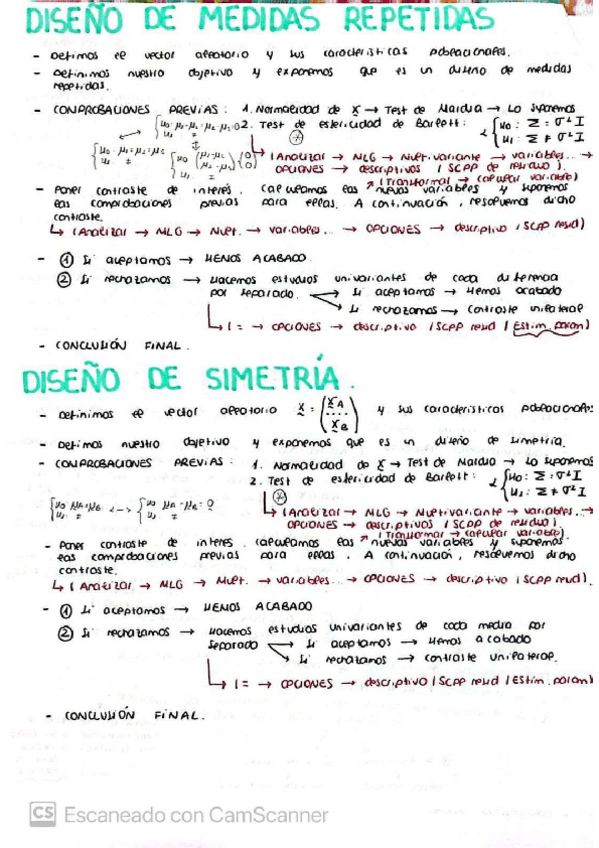 DISEÑO DE MEDIDAS REPETIDAS
- Definimos el vector aleatorio y sus características poblacionales.
- Definimos nuestro objetivo y exponemos que es un diseño de medidas
repetidas.
- COMPROBACIONES PREVIAS: 1. Normalidad de X → Test de Mardia → Lo suponemos
2. Test de esfericidad de Barlett: { H0: Σ = σ² I
H1: Σ ≠ σ² I
(Analizar → MLG → Multivariante → variables... →
OPCIONES → descriptivos / SCPP de residuo)
- Poner contraste de interés. Calculamos las nuevas variables y suponemos
(Transformar → calcular variable)
las comprobaciones previas para ellas. A continuación, resolvemos dicho
contraste.
↳ (Analizar → MLG → Mult. → variables... → OPCIONES → descriptivo / SCPP resid)
- ① Si aceptamos → HEMOS ACABADO.
② Si rechazamos → Hacemos estudios univariantes de cada diferencia
por separado. → Si aceptamos → Hemos acabado
→ Si rechazamos → Contraste unilateral
↳ ( = → OPCIONES → descriptivo / SCPP resid / Estim. param)
- CONCLUSIÓN FINAL.
DISEÑO DE SIMETRÍA.
- Definimos el vector aleatorio X = (XA ..... XB) y sus características poblacionales
- Definimos nuestro objetivo y exponemos que es un diseño de simetría.
- COMPROBACIONES PREVIAS: 1. Normalidad de X → Test de Mardia → Lo suponemos
2. Test de esfericidad de Barlett: { H0: Σ = σ² I
H1: Σ ≠ σ² I
{ H0 μA = μB <--> { H0 μA - μB = 0
H1 ≠ H1 ≠
↳ (Analizar → MLG → Multivariante → variables... →
OPCIONES → descriptivos / SCPP de residuo)
(Transformar → calcular variable)
- Poner contraste de interés. Calculamos las nuevas variables y suponemos
las comprobaciones previas para ellas. A continuación, resolvemos dicho
contraste.
↳ (Analizar → MLG → Mult. → variables... → OPCIONES → descriptivo / SCPP resid).
- ① Si aceptamos → HEMOS ACABADO
② Si rechazamos → Hacemos estudios univariantes de cada media por
separado → Si aceptamos → Hemos acabado
→ Si rechazamos → Contraste unilateral.
↳ ( = → OPCIONES → descriptivo / SCPP resid / Estim. param)
- CONCLUSIÓN FINAL.
CS Escaneado con CamScanner